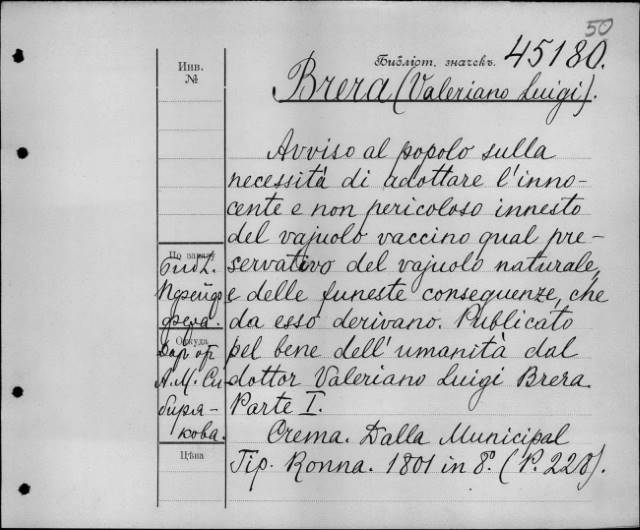 50
Библіот. значекъ. 45180.
Инв.
№
Brera (Valeriano Luigi).
Avviso al popolo sulla
necessità di adottare l'inno-
cente e non pericoloso innesto
del vajuolo vaccino qual pre-
servativo del vajuolo naturale,
e delle funeste conseguenze, che
da esso derivano. Publicato
pel bene dell'umanità dal
dottor Valeriano Luigi Brera
Parte I.
Crema. Dalla Municipal
Tip. Ronna. 1801 in 8º. (P. 220).
По
Библ.
Пфейф
фера.
Откуда
Дар. от
А. М. Си
биря-
кова.
Цѣна